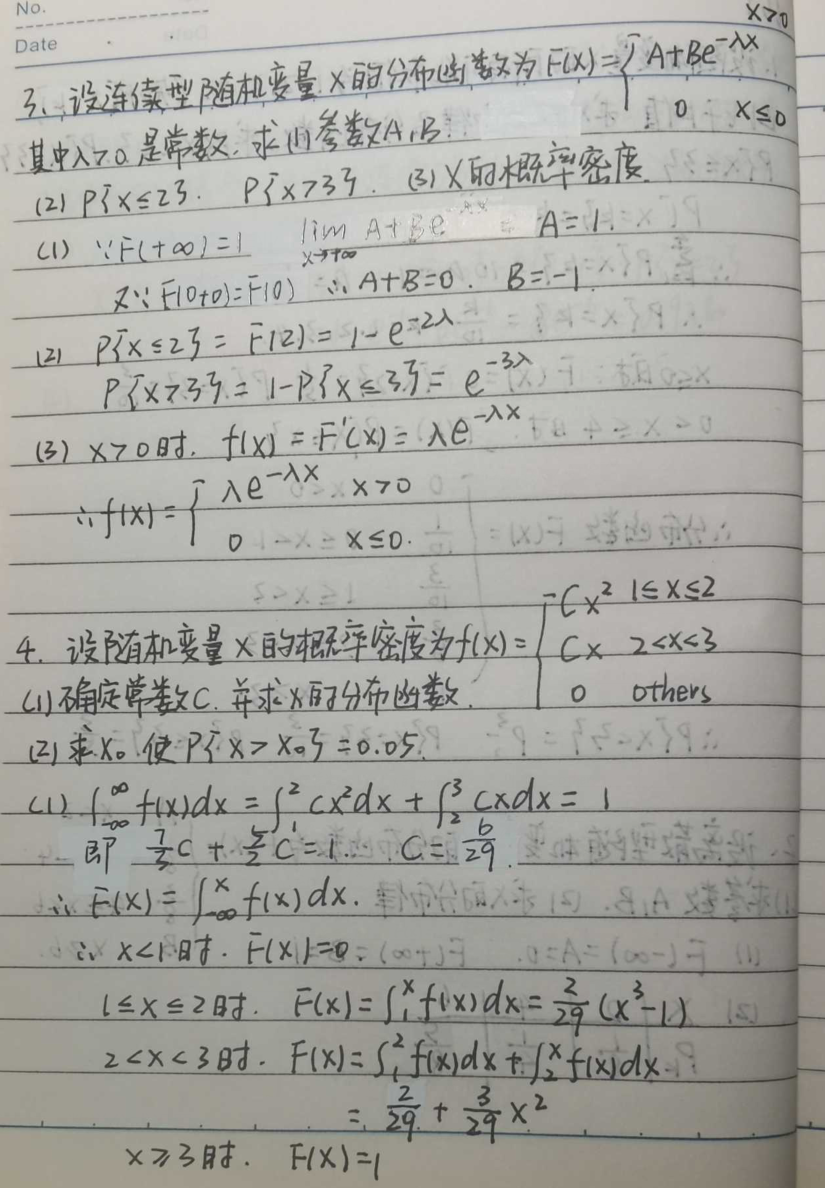 No.
Date
3、设连续型随机变量X的分布函数为F(x)={ A+Be^{-λx} x>0
0 x≤0
其中λ>0是常数,求(1)参数A,B.
(2) P{x≤2}. P{x>3}. (3) X的概率密度.
(1) ∵F(+∞)=1 lim_{x→+∞} A+Be^{-λx} = A=1.
又∵F(0+0)=F(0) ∴A+B=0. B=-1
(2) P{x≤2}=F(2)=1-e^{-2λ}
P{x>3}=1-P{x≤3}=e^{-3λ}
(3) x>0时. f(x)=F'(x)=λe^{-λx}
∴f(x)={ λe^{-λx} x>0
0 x≤0.
4. 设随机变量X的概率密度为f(x)={ Cx² 1≤x≤2
Cx 2<x<3
0 others
(1)确定常数C.并求X的分布函数.
(2)求x₀.使P{x>x₀}=0.05.
(1) ∫_{-∞}^{∞} f(x)dx=∫_1^2 cx²dx+∫_2^3 cxdx=1
即 7/3 C + 5/2 C=1. C=6/29.
∴F(x)=∫_{-∞}^x f(x)dx.
∴x<1时. F(x)=0.
1≤x≤2时. F(x)=∫_1^x f(x)dx=2/29 (x³-1)
2<x<3时. F(x)=∫_1^2 f(x)dx+∫_2^x f(x)dx.
=2/29+3/29 x²
x≥3时. F(x)=1